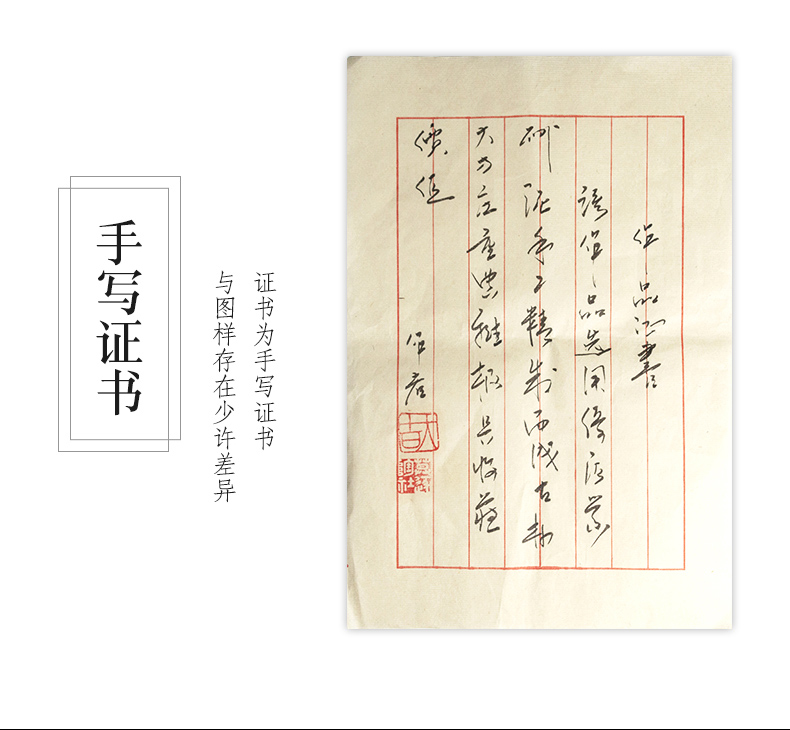 手写证书
证书为手写证书
与图样存在少许差异
作品证書
該作品选用優质紫
砂泥手工精制而成古朴
大方庄重典雅极具收藏
價值
作者